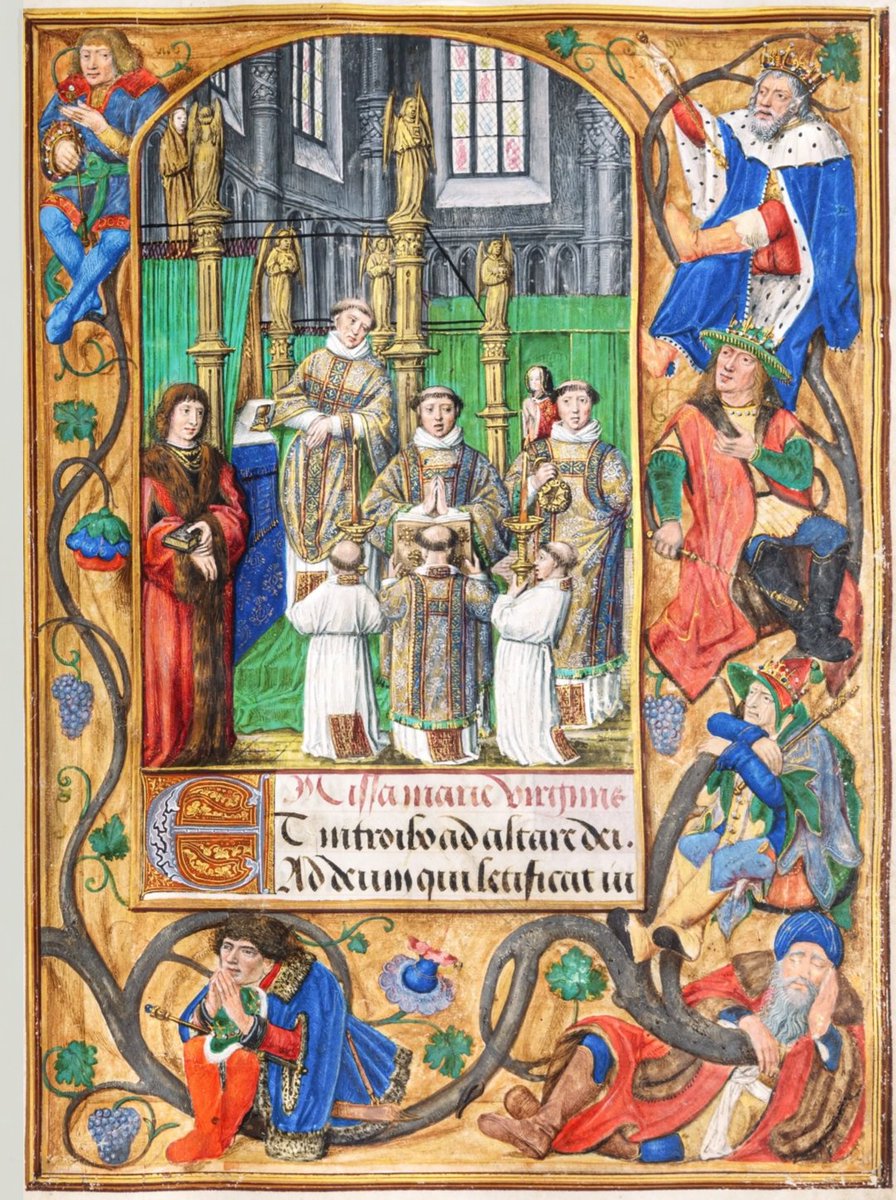 Missa marie virginis
ET introibo ad altare dei.
Ad deum qui letificat iu